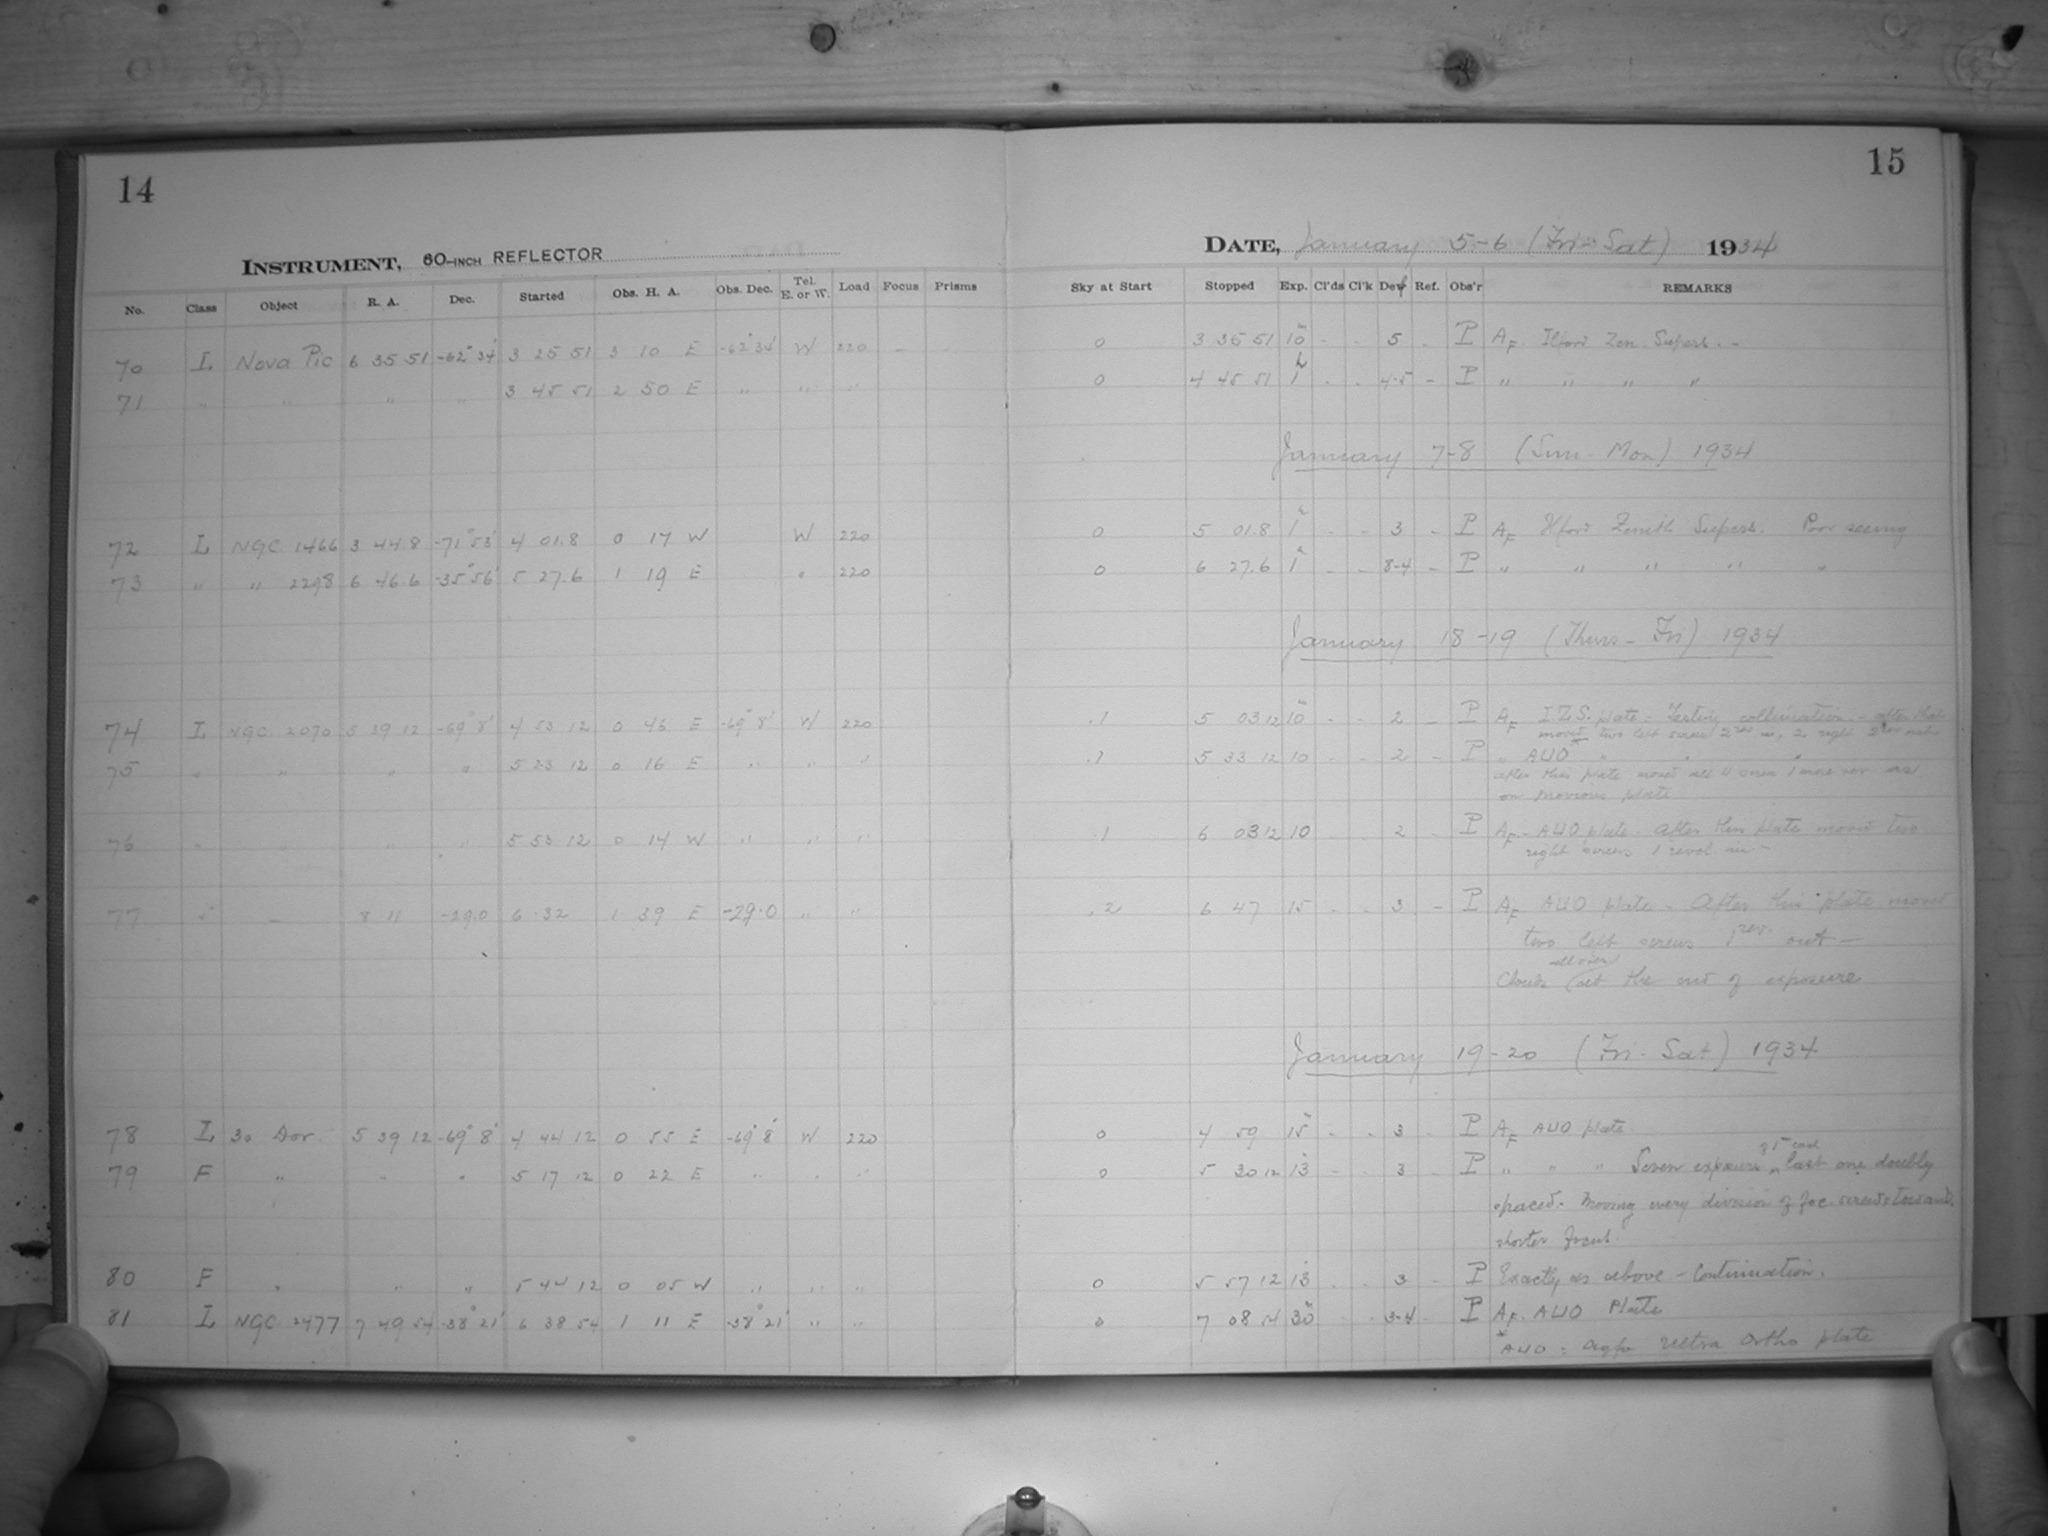 14
15
INSTRUMENT, 60-INCH REFLECTOR
DATE, January 5-6 (Fri-Sat) 1934
No. Class Object R. A. Dec. Started Obs. H. A. Obs. Dec. Tel. E. or W. Load Focus Prisms Sky at Start Stopped Exp. Cl'ds Cl'k Dew Ref. Obs'r REMARKS
70 L Nova Pic 6 35 51 -62° 34' 3 25 51 3 10 E -62° 34' W 220 - 0 3 35 51 10m - - 5 - P AF. Ilford Zen. Supers. -
71 " " " " 3 45 51 2 50 E " " " 0 4 45 51 1h - - 4-5 - P " " " "
January 7-8 (Sun-Mon) 1934
72 L NGC 1466 3 44.8 -71° 53' 4 01.8 0 17 W W 220 0 5 01.8 1h - - 3 - P AF Ilford Zenith Supers. Poor seeing
73 " " 2298 6 46.6 -35° 56' 5 27.6 1 19 E " 220 0 6 27.6 1h - - 3-4 - P " " " " "
January 18-19 (Thurs-Fri) 1934
74 L NGC 2070 5 39 12 -69° 8' 4 53 12 0 46 E -69° 8' W 220 .1 5 03 12 10m - - 2 - P AF I.Z.S. plate - Testing collimation - after that
moved two left screws 2 rev in, 2 right 2 rev out
75 " " " " 5 23 12 0 16 E " " " .1 5 33 12 10 - - 2 - P " AUO* " " "
after this plate moved all 4 screws 1 more rev as
on previous plate
76 " " " 5 53 12 0 14 W " " " .1 6 03 12 10 2 - P AF - AUO plate. After this plate moved two
right screws 1 revol. in -
77 " - 8 11 -29.0 6 32 1 39 E -29.0 " " .2 6 47 15 - - 3 - P AF AUO plate - After this plate moved
two left screws 1 rev. out -
all over
Clouds at the end of exposure
January 19-20 (Fri-Sat) 1934
78 L 30 Dor. 5 39 12 -69° 8' 4 44 12 0 55 E -69° 8' W 220 0 4 59 15m - - 3 - P AF AUO plate.
79 F " " " 5 17 12 0 22 E " " " 0 5 30 12 13 - - 3 - P " " " Seven exposures of 1m each last one doubly
spaced. Moving every division of foc. screws toward
shorter focus.
80 F " " " 5 44 12 0 05 W " " " 0 5 57 12 13 - - 3 - P Exactly as above - Continuation.
81 L NGC 2477 7 49 54 -38° 21' 6 38 54 1 11 E -38° 21' " " 0 7 08 54 30m - - 3-4 - P AF. AUO Plate
* AUO = Agfa Ultra Ortho plate